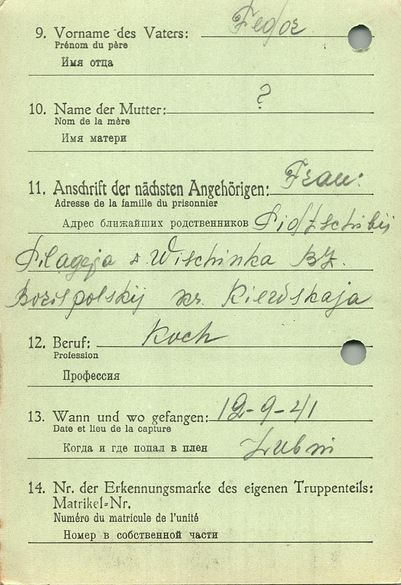 9. Vorname des Vaters: Fedor
Prénom du père
Имя отца
10. Name der Mutter: ?
Nom de la mère
Имя матери
11. Anschrift der nächsten Angehörigen: Frau:
Adresse de la famille du prisonnier
Адрес ближайших родственников
Pilageja d. Wischinka BZ.
Borispolskij kr. Kiewskaja
12. Beruf: Koch
Profession
Профессия
13. Wann und wo gefangen: 12-9-41
Date et lieu de la capture
Когда и где попал в плен Lubni
14. Nr. der Erkennungsmarke des eigenen Truppenteils:
Matrikel-Nr.
Numéro du matricule de l'unité
Номер в собственной части